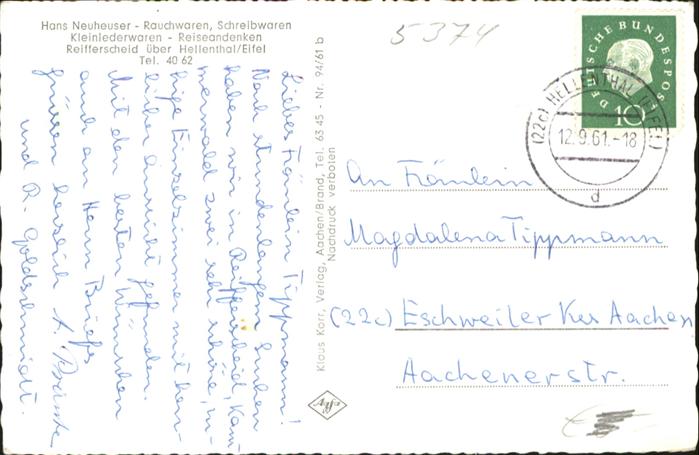 Hans Neuheuser - Rauchwaren, Schreibwaren
Kleinlederwaren - Reiseandenken
Reifferscheid über Hellenthal/Eifel
Tel. 40 62
5374
DEUTSCHE BUNDESPOST
10
(22c) HELLENTHAL (EIFEL)
12.9.61.-18
d
Liebes Fräulein Tippmann!
Nach stundenlangem Suchen
haben wir in Reifferscheid, Kam-
merwald zwei sehr schöne, ru-
hige Einzelzimmer mit herr-
licher Aussicht gefunden.
Mit den besten Wünschen
auch an Herrn Briefs
grüssen herzlich A.
und R. Goldschmidt.
Klaus Korr, Verlag, Aachen/Brand, Tel. 63 45 - Nr. 94/61 b
Nachdruck verboten
An Fräulein
Magdalena Tippmann
(22c) Eschweiler Krs Aachen
Aachenerstr.